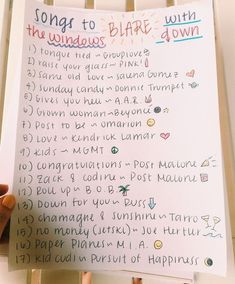 songs to BLARE with
the windows down
1) tongue tied ~ Grouplove
2) raise your glass ~ P!NK!
3) same old love ~ Saleena Gomez
4) Sunday candy ~ Donnie Trumpet
5) Gives you hell ~ A.A.R.
6) Grown woman ~ Beyonce
7) Post to be ~ Omarion
8) Love ~ Kendrick Lamar
9) Kids ~ MGMT
10) Congratulations ~ Post Malone
11) Zack & Codine ~ Post Malone
12) Roll up ~ B.O.B
13) Down for You ~ Russ
14) chamagne & Sunshine ~ Tarro
15) no money (jetski) ~ Joe Hertler
16) Paper Planes ~ M.I.A.
17) Kid cudi ~ Pursuit of Happiness